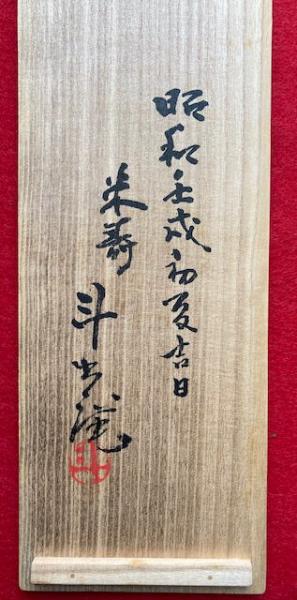 昭和壬戌初夏吉日
米寿 斗出庵